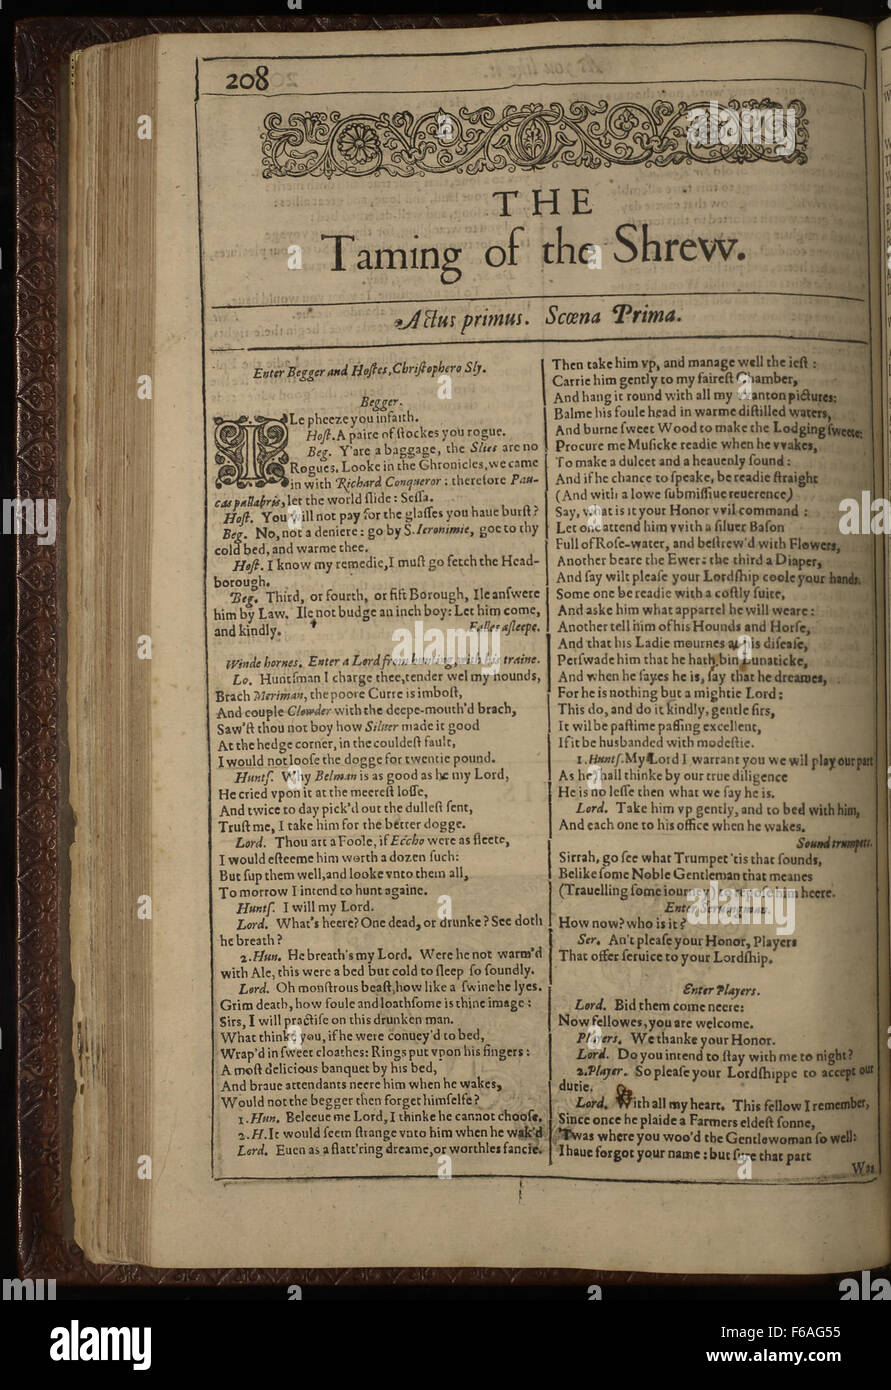 208
THE
Taming of the Shrew.
Actus primus. Scœna Prima.
Enter Begger and Hostes, Christophero Sly.
Begger.
Ile pheeze you infaith.
Host. A paire of stockes you rogue.
Beg. Y'are a baggage, the Slies are no
Rogues. Looke in the Chronicles, we came
in with Richard Conqueror: therefore Pau-
cas pallabris, let the world slide: Sessa.
Host. You will not pay for the glasses you haue burst?
Beg. No, not a deniere: go by S. Ieronimie, goe to thy
cold bed, and warme thee.
Host. I know my remedie, I must go fetch the Head-
borough.
Beg. Third, or fourth, or fift Borough, Ile answere
him by Law. Ile not budge an inch boy: Let him come,
and kindly. Falles asleepe.
Winde hornes. Enter a Lord from hunting, with his traine.
Lo. Huntsman I charge thee, tender wel my hounds,
Brach Meriman, the poore Curre is imbost,
And couple Clowder with the deepe-mouth'd brach,
Saw'st thou not boy how Siluer made it good
At the hedge corner, in the couldest fault,
I would not loose the dogge for twentie pound.
Hunts. Why Belman is as good as he my Lord,
He cried vpon it at the meerest losse,
And twice to day pick'd out the dullest sent,
Trust me, I take him for the better dogge.
Lord. Thou art a Foole, if Eccho were as fleete,
I would esteeme him worth a dozen such:
But sup them well, and looke vnto them all,
To morrow I intend to hunt againe.
Hunts. I will my Lord.
Lord. What's heere? One dead, or drunke? See doth
he breath?
2. Hun. He breath's my Lord. Were he not warm'd
with Ale, this were a bed but cold to sleep so soundly.
Lord. Oh monstrous beast, how like a swine he lyes.
Grim death, how foule and loathsome is thine image:
Sirs, I will practise on this drunken man.
What thinke you, if he were conuey'd to bed,
Wrap'd in sweet cloathes: Rings put vpon his fingers:
A most delicious banquet by his bed,
And braue attendants neere him when he wakes,
Would not the begger then forget himselfe?
1. Hun. Beleeue me Lord, I thinke he cannot choose.
2. H. It would seem strange vnto him when he wak'd
Lord. Euen as a flatt'ring dreame, or worthles fancie.
Then take him vp, and manage well the iest:
Carrie him gently to my fairest Chamber,
And hang it round with all my wanton pictures:
Balme his foule head in warme distilled waters,
And burne sweet Wood to make the Lodging sweete:
Procure me Musicke readie when he wakes,
To make a dulcet and a heauenly sound:
And if he chance to speake, be readie straight
(And with a lowe submissiue reuerence)
Say, what is it your Honor wil command:
Let one attend him with a siluer Bason
Full of Rose-water, and bestrew'd with Flowers,
Another beare the Ewer: the third a Diaper,
And say wilt please your Lordship coole your hands.
Some one be readie with a costly suite,
And aske him what apparrel he will weare:
Another tell him of his Hounds and Horse,
And that his Ladie mournes at his disease,
Perswade him that he hath bin Lunaticke,
And when he sayes he is, say that he dreames,
For he is nothing but a mightie Lord:
This do, and do it kindly, gentle sirs,
It wil be pastime passing excellent,
If it be husbanded with modestie.
1. Hunts. My Lord I warrant you we wil play our part
As he shall thinke by our true diligence
He is no lesse then what we say he is.
Lord. Take him vp gently, and to bed with him,
And each one to his office when he wakes.
Sound trumpets.
Sirrah, go see what Trumpet 'tis that sounds,
Belike some Noble Gentleman that meanes
(Trauelling some iourney) to repose him heere.
Enter Seruingman.
How now? who is it?
Ser. An't please your Honor, Players
That offer seruice to your Lordship.
Enter Players.
Lord. Bid them come neere:
Now fellowes, you are welcome.
Players. We thanke your Honor.
Lord. Do you intend to stay with me to night?
2. Player. So please your Lordshippe to accept our
dutie.
Lord. With all my heart. This fellow I remember,
Since once he plaide a Farmers eldest sonne,
'Twas where you woo'd the Gentlewoman so well:
I haue forgot your name: but sure that part
Was
alamy
Image ID: F6AG55
www.alamy.com